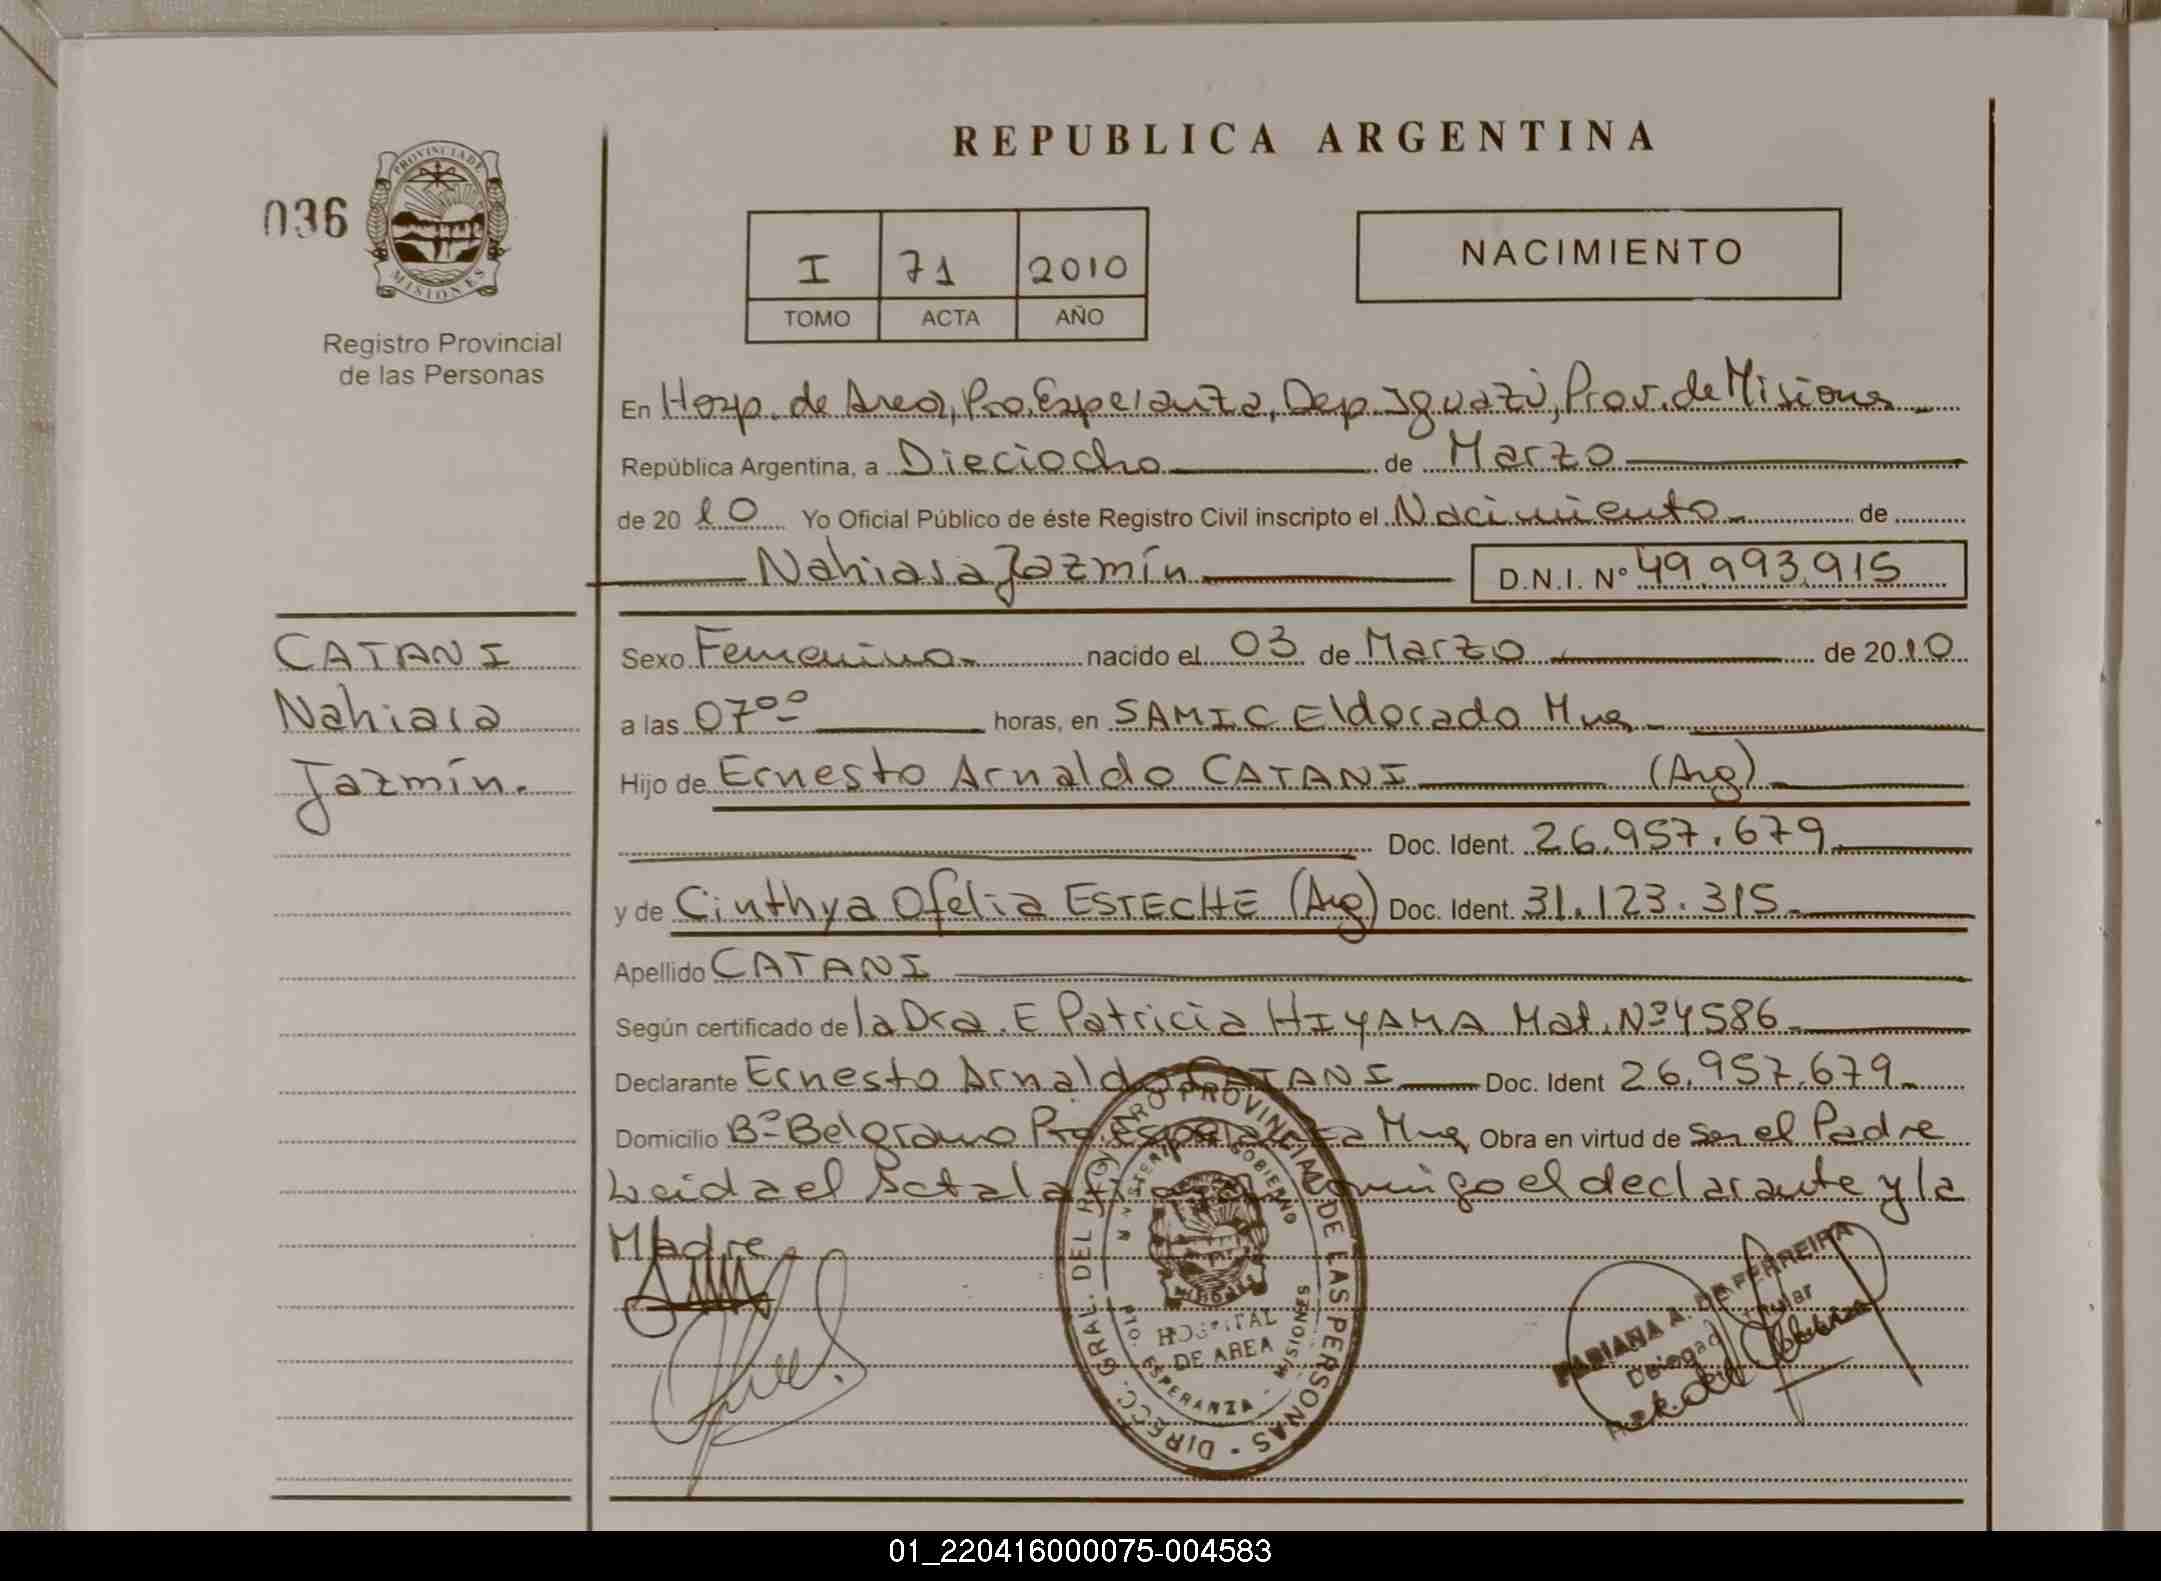 REPUBLICA ARGENTINA
036
PROVINCIA DE
MISIONES
Registro Provincial
de las Personas
I 71 2010
TOMO ACTA AÑO
NACIMIENTO
En Hosp. de Area, Pto. Esperanza, Dep. Iguazú, Prov. de Misiones
República Argentina, a Dieciocho de Marzo
de 2010 Yo Oficial Público de éste Registro Civil inscripto el Nacimiento de
Nahiara Jazmín D.N.I. Nº 49.993.915
CATANI
Nahiara
Jazmín.
Sexo Femenino nacido el 03 de Marzo de 2010
a las 07⁰⁰ horas, en SAMIC Eldorado Mnes
Hijo de Ernesto Arnaldo CATANI (Arg)
Doc. Ident. 26.957.679
y de Cinthya Ofelia ESTECHE (Arg) Doc. Ident. 31.123.315
Apellido CATANI
Según certificado de la Dra. E Patricia HIYAMA Mat. Nº 4586
Declarante Ernesto Arnaldo CATANI Doc. Ident 26.957.679
Domicilio Bº Belgrano Pto. Esperanza Mnes Obra en virtud de ser el Padre
Leida el Acta la conmigo el declarante y la
Madre
DIRECC. GRAL. DEL REGISTRO PROVINCIAL DE LAS PERSONAS
MINISTERIO GOBIERNO
HOSPITAL
DE AREA
PTO. ESPERANZA - MISIONES
A. DE FERREIRA
Titular
01_220416000075-004583